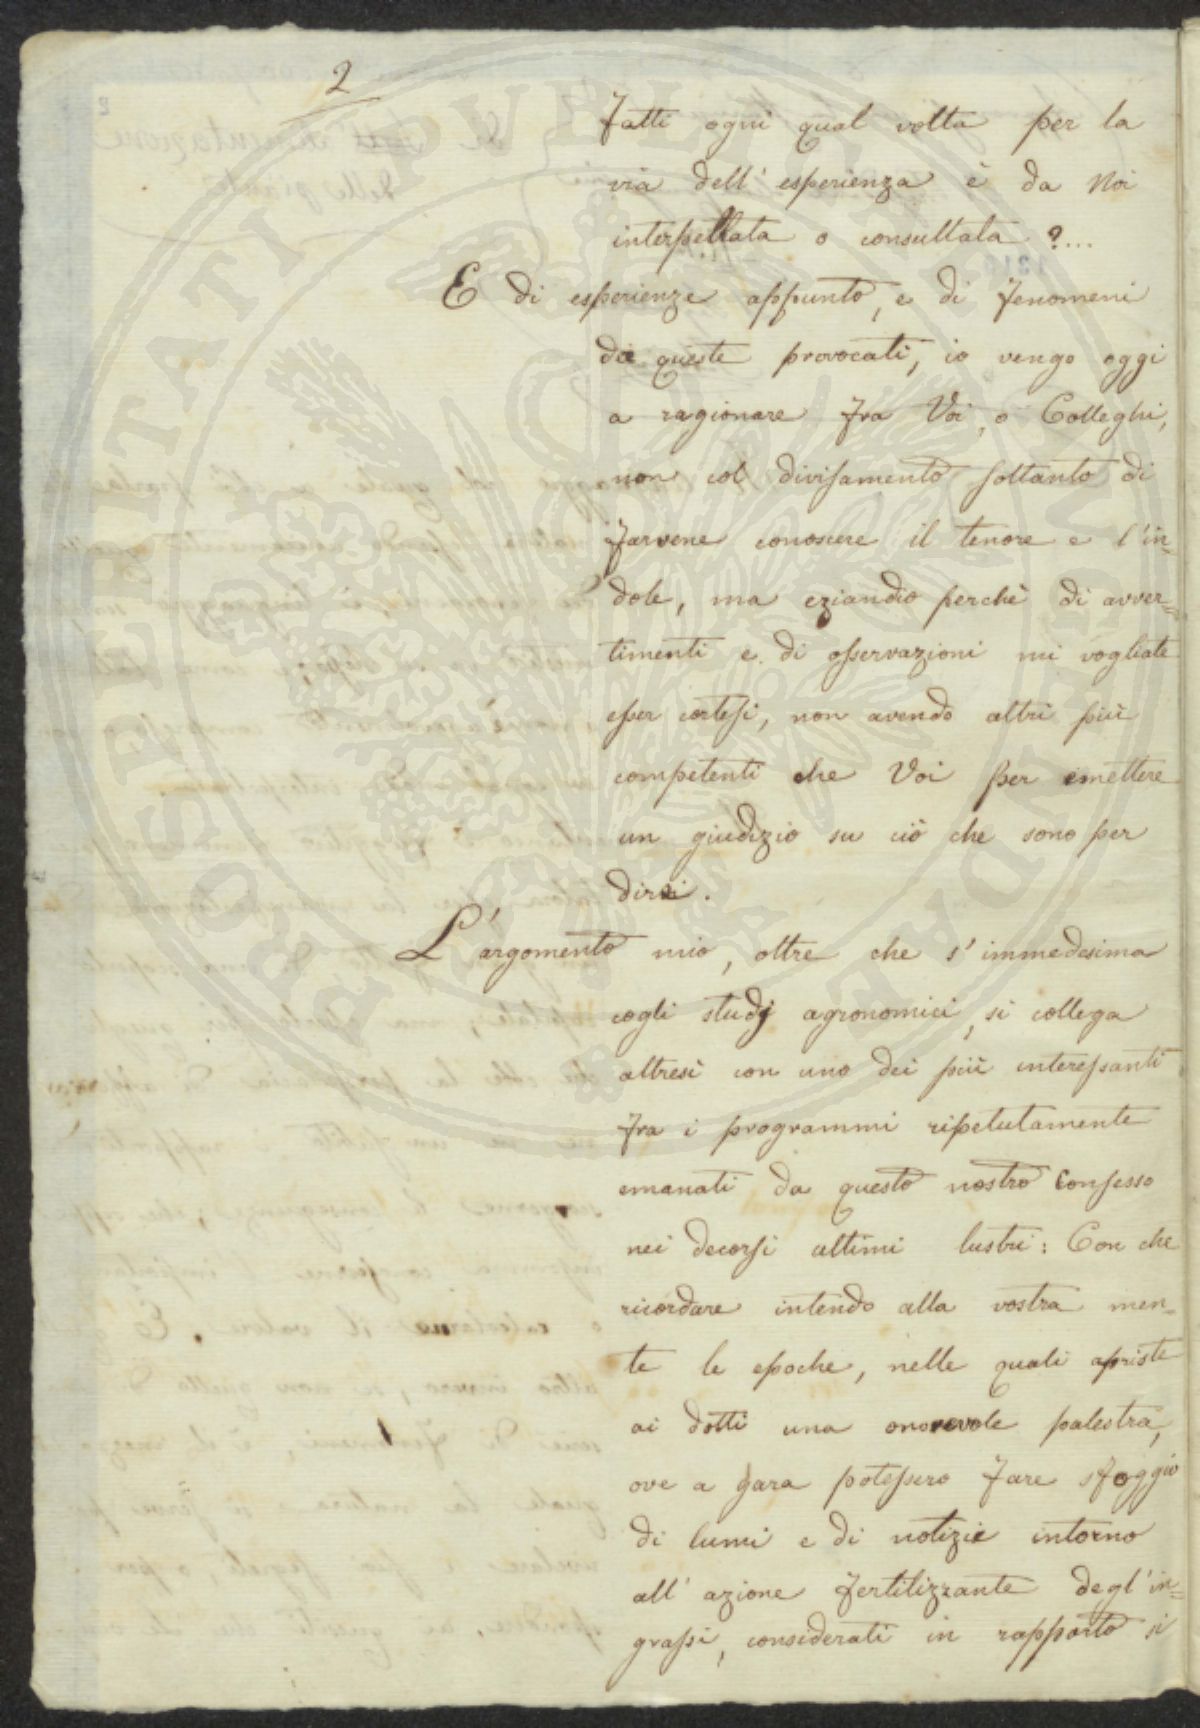 2
Fatti ogni qual volta per la
via dell'esperienza è da Noi
interpellata o consultata ?...
E di esperienze appunto, e di fenomeni
da queste provocati, io vengo oggi
a ragionare fra Voi, o Colleghi,
non col divisamento soltanto di
farvene conoscere il tenore e l'in=
dole, ma eziandio perchè di avver=
timenti e di osservazioni mi vogliate
esser cortesi, non avendo altri più
competenti che Voi per emettere
un giudizio su ciò che sono per
dirvi.
L'argomento mio, oltre che s'immedesima
cogli studj agronomici, si collega
altresì con uno dei più interessanti
fra i programmi ripetutamente
emanati da questo nostro Consesso
nei decorsi ultimi lustri: Con che
ricordare intendo alla vostra men=
te le epoche, nelle quali apriste
ai dotti una onorevole palestra,
ove a gara potessero fare sfoggio
di lumi e di notizie intorno
all'azione fertilizzante degl'in=
grassi, considerati in rapporto sì
PROSPERITATI PUBLICAE AUGENDAE